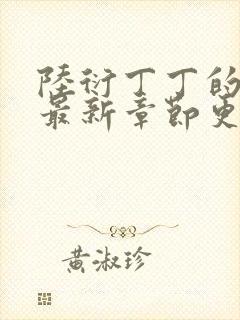 陸衍丁丁的
最新章節更
黃淑珍